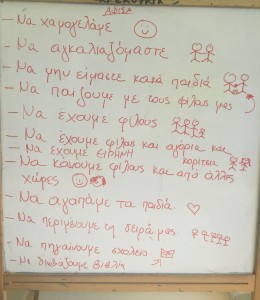 ΑΦΙΣΑ
- Να χαμογελάμε
- Να αγκαλιαζόμαστε
- Να μην είμαστε κατά παιδιά
- Να παίζουμε με τους φίλους μας
- Να έχουμε φίλους
- Να έχουμε φίλους και αγόρια και κορίτσια
- Να έχουμε ΕΙΡΗΝΗ
- Να κάνουμε φίλους και από άλλες
χώρες
- Να αγαπάμε τα παιδιά
- Να περιμένουμε τη σειρά μας
- Να πηγαίνουμε σχολείο
- Να διαβάζουμε βιβλία